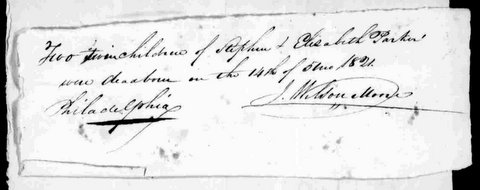 Two twin children of Stephen & Elizabeth Parker
were deadborn on the 14th of 5mo 1821
Philadelphia J. Wilson Moore